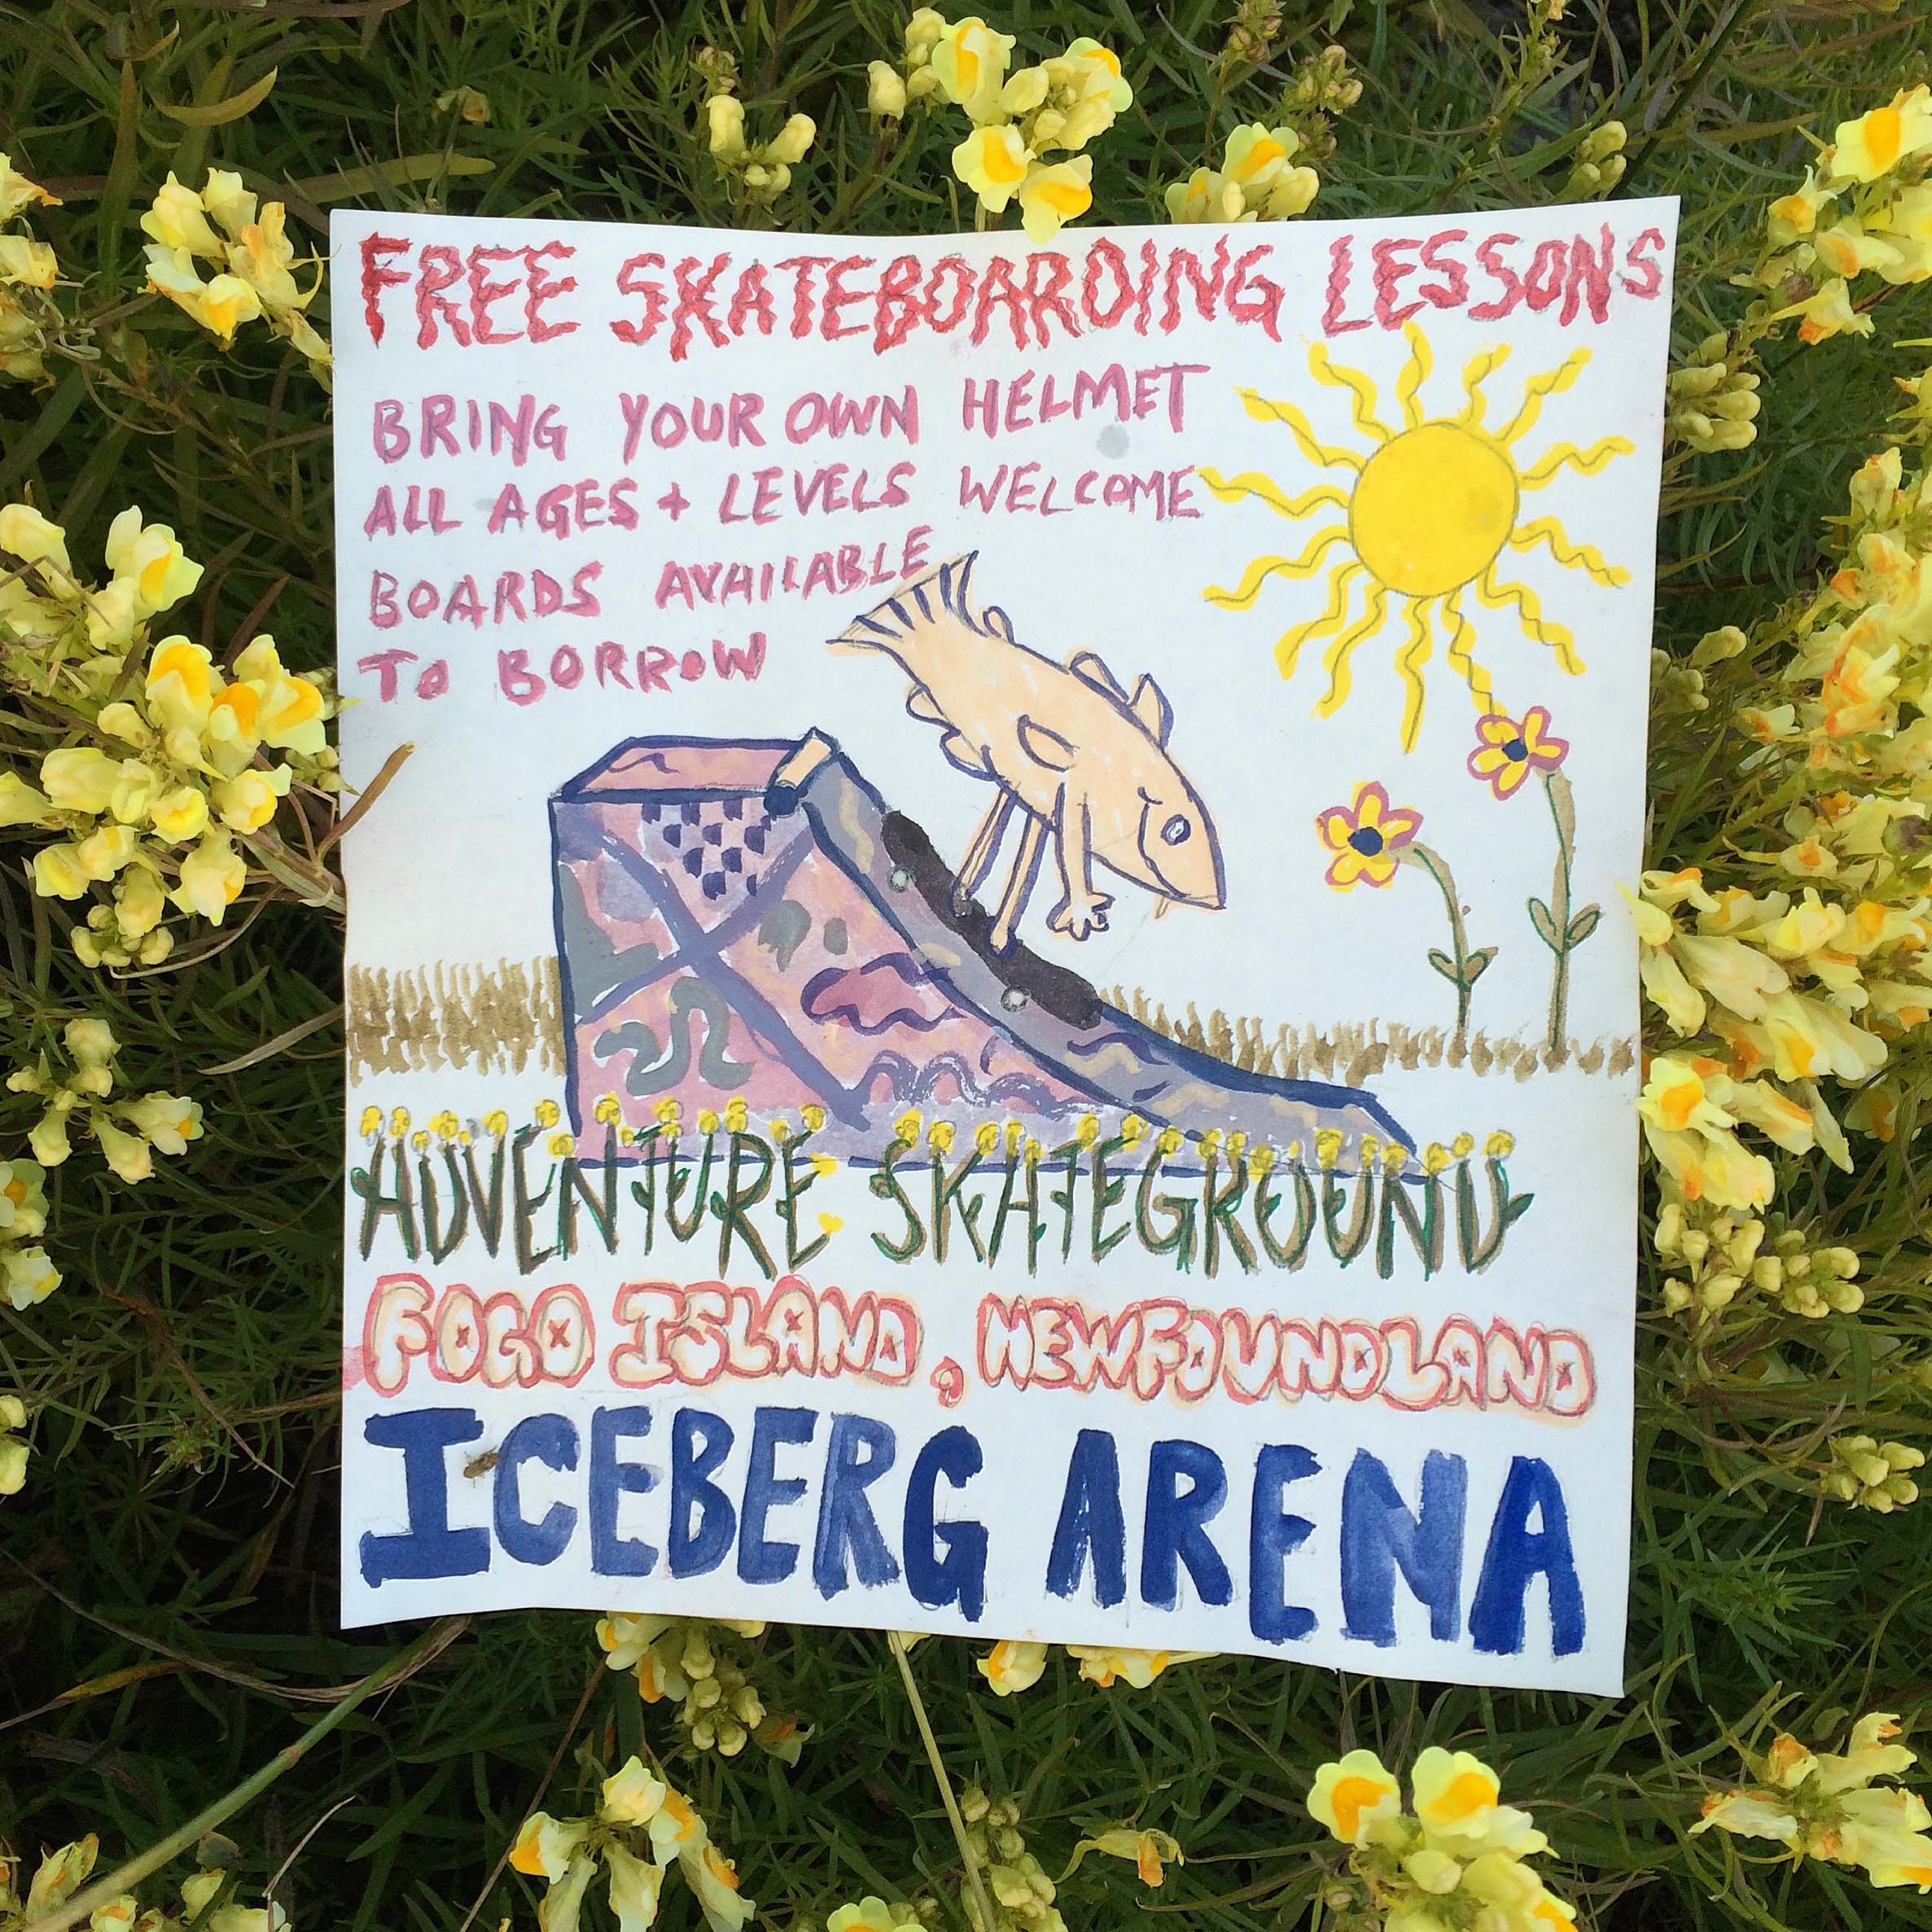 FREE SKATEBOARDING LESSONS
BRING YOUR OWN HELMET
ALL AGES + LEVELS WELCOME
BOARDS AVAILABLE
TO BORROW
ADVENTURE SKATEGROUND
FOGO ISLAND, NEWFOUNDLAND
ICEBERG ARENA